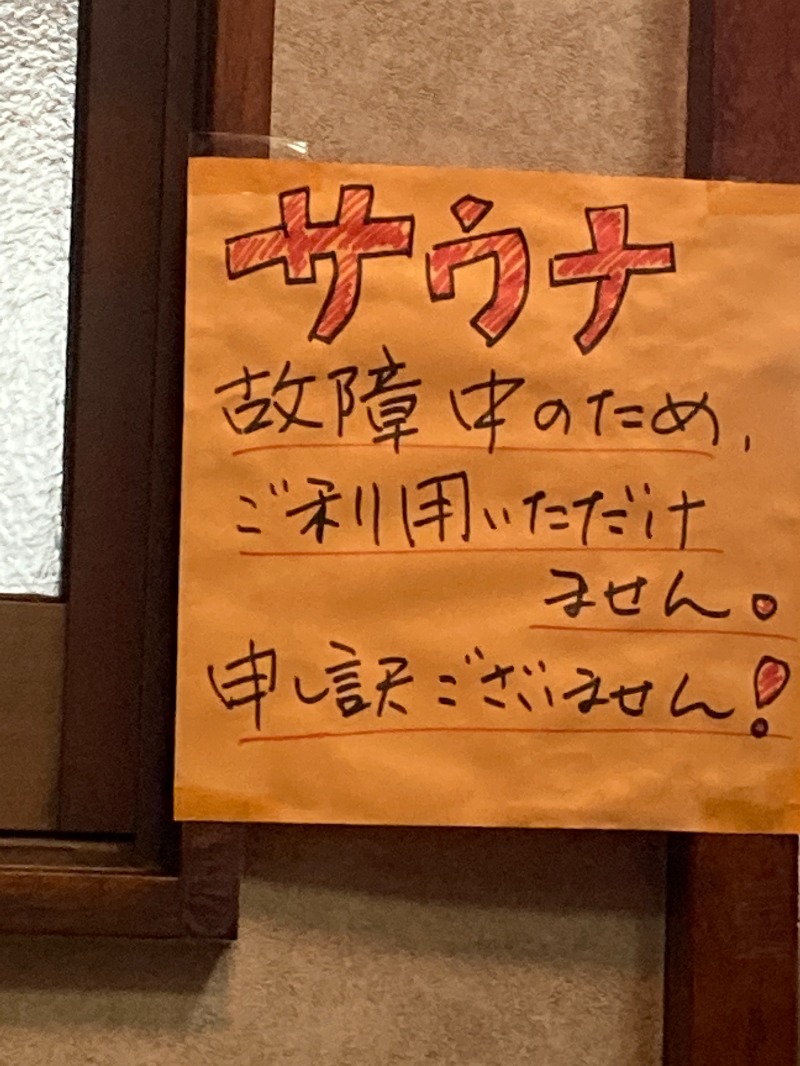 サウナ
故障中のため、
ご利用いただけ
ません。
申し訳ございません!